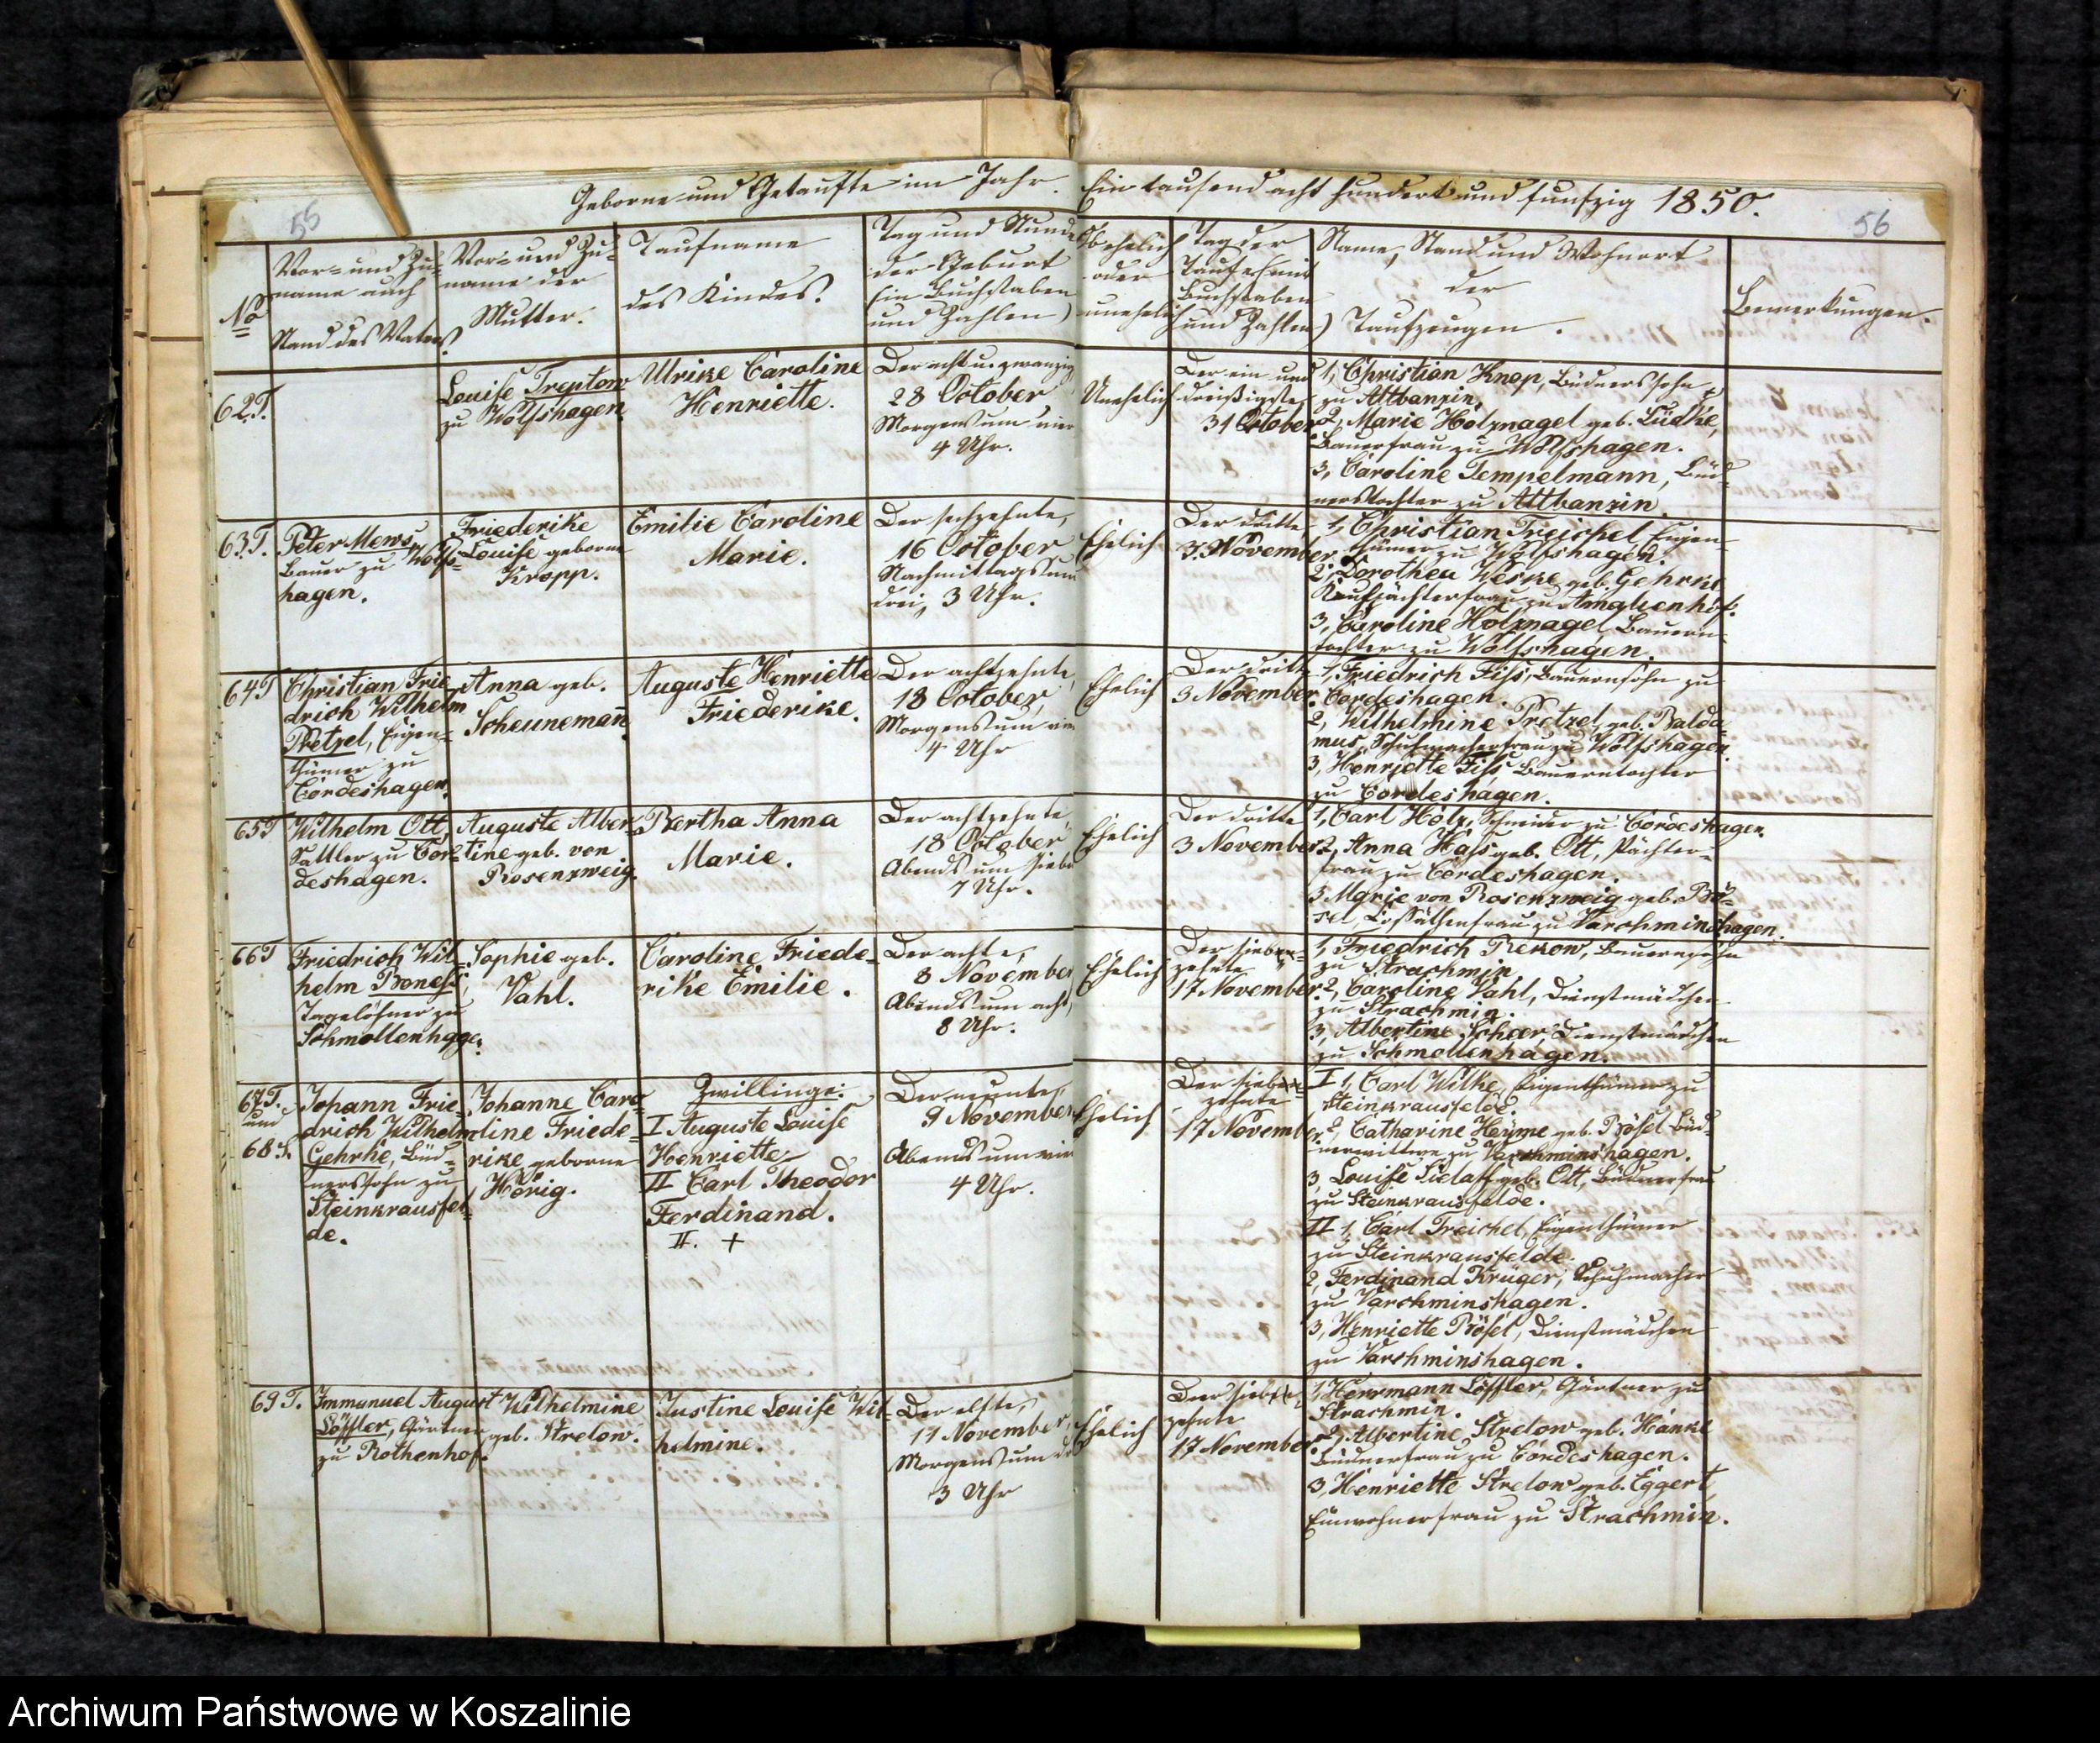 Geborne und Getaufte im Jahr. Ein tausend acht hundert und funfzig 1850.
55
56
No
Vor- und Zu-
name auch
Stand des Vaters.
Vor- und Zu-
name der
Mutter.
Taufname
des Kindes.
Tag und Stunde
der Geburt
(in Buchstaben
und Zahlen)
Ob ehelich
oder
unehelich
Tag der
Taufe (mit
Buchstaben
und Zahlen)
Name, Stand und Wohnort
der
Taufzeugen.
Bemerkungen.
62.T.
Louise Treptow
zu Wolfshagen.
Ulrike Caroline
Henriette.
Der acht u. zwanzig
28 October
Morgens um vier
4 Uhr.
Unehelich
Der ein und
dreißigste
31 October
1, Christian Knop, Büdnerssohn
zu Altbanzin.
2, Marie Holznagel geb. Lüdke,
Bauerfrau zu Wolfshagen.
3, Caroline Tempelmann, Büd-
nerstochter zu Altbanzin.
63.T.
Peter Mews,
Bauer zu Wolfs-
hagen.
Friederike
Louise geborne
Kropp.
Emilie Caroline
Marie.
Der sechzehnte,
16 October
Nachmittags um
drei, 3 Uhr.
Ehelich
Der dritte,
3. November
1, Christian Treichel, Eigen-
thümer zu Wolfshagen.
2, Dorothea Weske geb. Gehrke
Kaufpächterfrau zu Amalienhof.
3, Caroline Holznagel, Bauern-
tochter zu Wolfshagen.
64T
Christian Frie
drich Wilhelm
Pretzel, Eigen-
thümer zu
Cordeshagen.
Anna geb.
Scheunemann.
Auguste Henriette
Friederike.
Der achtzehnte,
18 October,
Morgens um vier
4 Uhr
Ehelich
Der dritte
3 November.
1, Friedrich Fiss, Bauernsohn zu
Cordeshagen.
2, Wilhelmine Pretzel, geb. Balda-
mus, Schuhmacherfrau zu Wolfshagen.
3, Henriette Fiss Bauerntochter
zu Cordeshagen.
65T
Wilhelm Ott,
Sattler zu Cor-
deshagen.
Auguste Alber-
tine geb. von
Rosenzweig.
Bertha Anna
Marie.
Der achtzehnte,
18 October
Abends um sieben
7 Uhr.
Ehelich
Der dritte
3 November.
1, Carl Holz, Schneider zu Cordeshagen
2, Anna Hass geb. Ott, Pächter-
frau zu Cordeshagen.
3 Marie von Rosenzweig geb. Bö-
sel, Cossäthenfrau zu Varchminshagen.
66T
Friedrich Wil-
helm Boness,
Tagelöhner zu
Schmollenhagen.
Sophie geb.
Vahl.
Caroline Friede-
rike Emilie.
Der achte,
8 November
Abends um acht,
8 Uhr.
Ehelich
Der sieben-
zehnte
17 November.
1, Friedrich Rekow, Bauernsohn
zu Strachmin.
2, Caroline Vahl, Dienstmädchen
zu Strachmin.
3, Albertine Scheer, Dienstmädchen
zu Schmollenhagen.
67T.
und
68T.
Johann Frie-
drich Wilhelm
Gehrke, Büd-
nerssohn zu
Steinkrausfel-
de.
Johanne Caro-
line Friede-
rike geborne
Hörig.
Zwillinge:
I Auguste Louise
Henriette
II Carl Theodor
Ferdinand.
II. +
Der neunte,
9 November
Abends um vier
4 Uhr.
Ehelich
Der sieben-
zehnte
17 November.
I 1, Carl Wilke, Eigenthümer zu
Steinkrausfelde.
2, Catharine Heyme geb. Bösel Büd-
nerwittwe zu Varchminshagen.
3, Louise Sielaff geb. Ott, Büdnerfrau
zu Steinkrausfelde.
II 1, Carl Treichel, Eigenthümer
zu Steinkrausfelde.
2, Ferdinand Krüger, Schuhmacher
zu Varchminshagen.
3, Henriette Bösel, Dienstmädchen
zu Varchminshagen.
69 T.
Immanuel August
Löffler, Gärtner
zu Rothenhof.
Wilhelmine
geb. Strelow.
Justine Louise Wil-
helmine.
Der elfte,
11 November,
Morgens um drei
3 Uhr
Ehelich
Der sieben-
zehnte
17 November.
1, Herrmann Löffler, Gärtner zu
Strachmin.
2, Albertine Strelow geb. Hanke
Büdnerfrau zu Cordeshagen.
3, Henriette Strelow geb. Eggert,
Einwohnerfrau zu Strachmin.
Archiwum Państwowe w Koszalinie